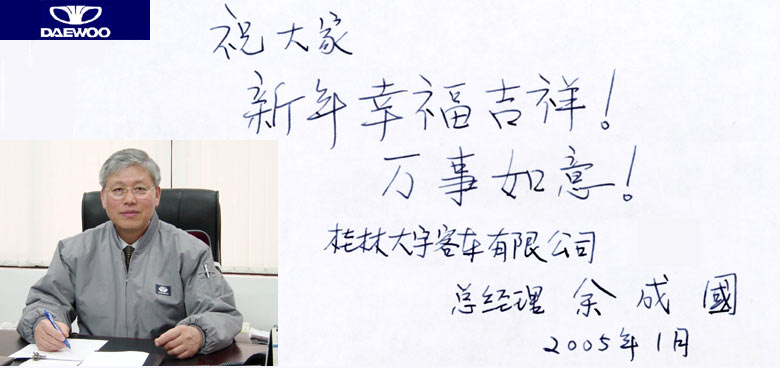 DAEWOO
祝大家
新年幸福吉祥!
万事如意!
桂林大宇客车有限公司
总经理 余成國
2005年1月